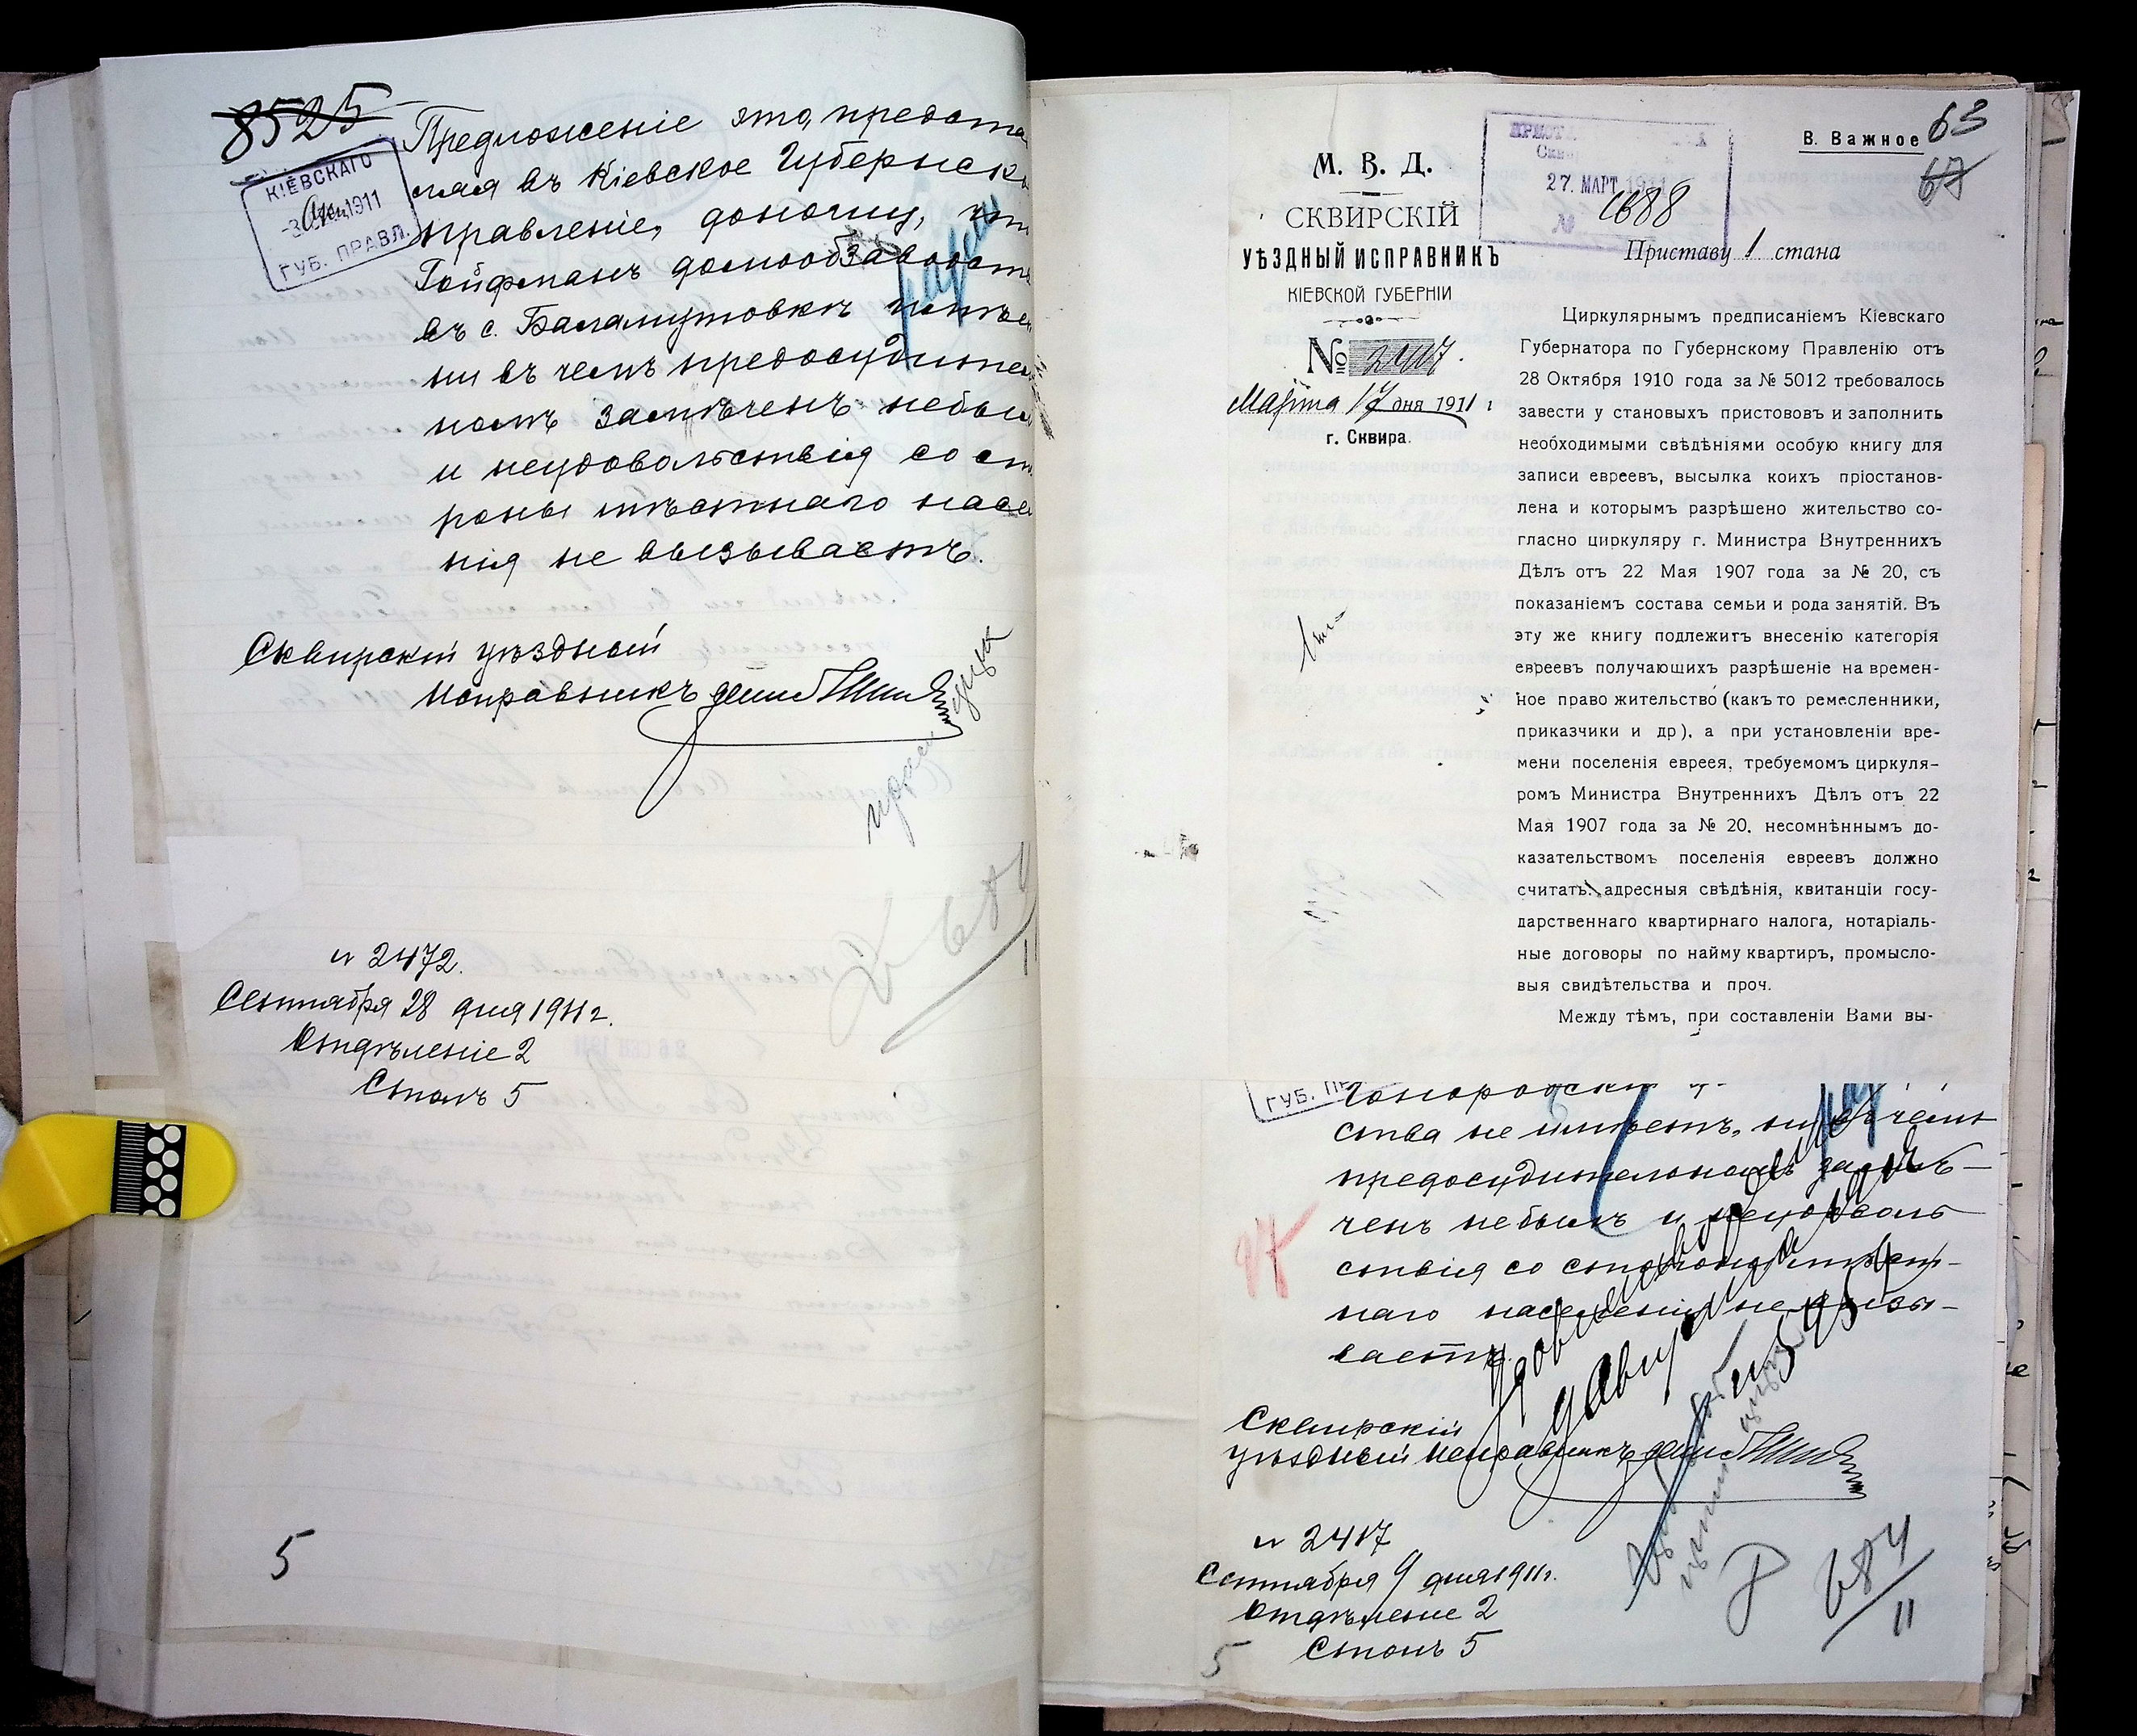 8525
КІЕВСКАГО
1911
ГУБ. ПРАВЛ.
Предложеніе это, предста
ляя въ Кіевское Губернск
правленіе, доношу, что
Гойфманъ домообзаводств
въ с. Баламутовкѣ имѣе
ни въ чемъ предосудител
номъ замѣченъ небыл
и неудовольствія со ст
роны мѣстнаго насел
нія не вызываетъ.
Сквирскій уѣздный
Исправникъ
№ 2472.
Сентября 28 дня 1911 г.
Отдѣленіе 2
Столъ 5
684
11
5
63
67
В. Важное
М. В. Д.
СКВИРСКІЙ
УѢЗДНЫЙ ИСПРАВНИКЪ
КІЕВСКОЙ ГУБЕРНІИ
№ 2417.
Марта 17 дня 1911 г
г. Сквира.
27. МАРТ 1911
№ 1688
Приставу 1 стана
Циркулярнымъ предписаніемъ Кіевскаго
Губернатора по Губернскому Правленію отъ
28 Октября 1910 года за № 5012 требовалось
завести у становыхъ пристововъ и заполнить
необходимыми свѣдѣніями особую книгу для
записи евреевъ, высылка коихъ пріостанов-
лена и которымъ разрѣшено жительство со-
гласно циркуляру г. Министра Внутреннихъ
Дѣлъ отъ 22 Мая 1907 года за № 20, съ
показаніемъ состава семьи и рода занятій. Въ
эту же книгу подлежитъ внесенію категорія
евреевъ получающихъ разрѣшеніе на времен-
ное право жительство (какъ то ремесленники,
приказчики и др), а при установленіи вре-
мени поселенія евреея, требуемомъ циркуля-
ромъ Министра Внутреннихъ Дѣлъ отъ 22
Мая 1907 года за № 20, несомнѣннымъ до-
казательствомъ поселенія евреевъ должно
считать: адресныя свѣдѣнія, квитанціи госу-
дарственнаго квартирнаго налога, нотаріаль-
ные договоры по найму квартиръ, промысло-
выя свидѣтельства и проч.
Между тѣмъ, при составленіи Вами вы-
ГУБ. ПР
ства не имѣетъ, ни въ чемъ
предосудительномъ замѣ-
ченъ небылъ и неудоволь
ствія со стороны мѣст-
наго населенія не вызы-
ваетъ.
Сквирскій
уѣздный Исправникъ
№ 2417
Сентября 9 дня 1911 г.
Отдѣленіе 2
Столъ 5
5
684
11